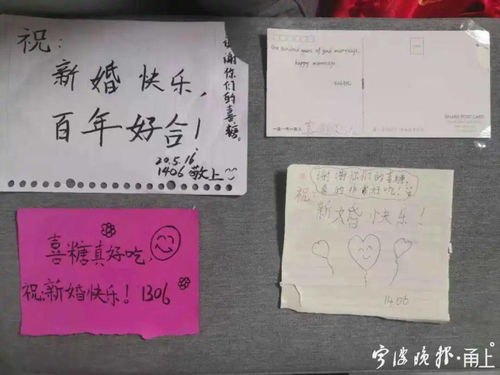 祝：
新婚快乐，
百年好合！
谢谢你们的喜糖。
20.5.16
1406 敬上
One hundred years of good marriage,
happy marriage
SHARE POSTCARD
喜糖真好吃，
祝：新婚快乐！1306
谢谢你们的喜糖，
真的非常好吃！
祝：
新婚快乐！
1406
宁波晚报·甬上